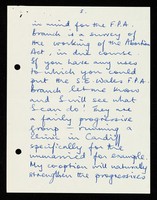 2.
in mind for the F.P.A.
Branch is a survey of
the working of the Abortion
Act, in due course
If you have any uses
to which you could
put the S.E Wales F.P.A
Branch let me know
and I will see what
I can do! They are
a fairly progressive
group - running a
clinic in Cardiff
specifically for the
unmarried for example.
My co-option will naturally
strengthen the progressives